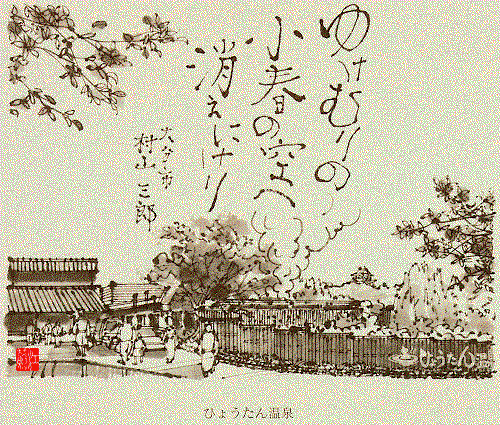 ゆけむりの
小春の空へ
消えにけり
大分市
村山 三郎
ひょうたん温
ひょうたん温泉